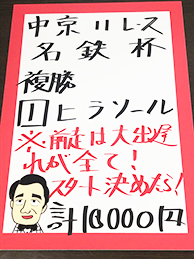 中京11レース
名鉄杯
複勝
1 ヒラソール
※前走は大出遅
れが全て!
スタート決めたら!
計10000円